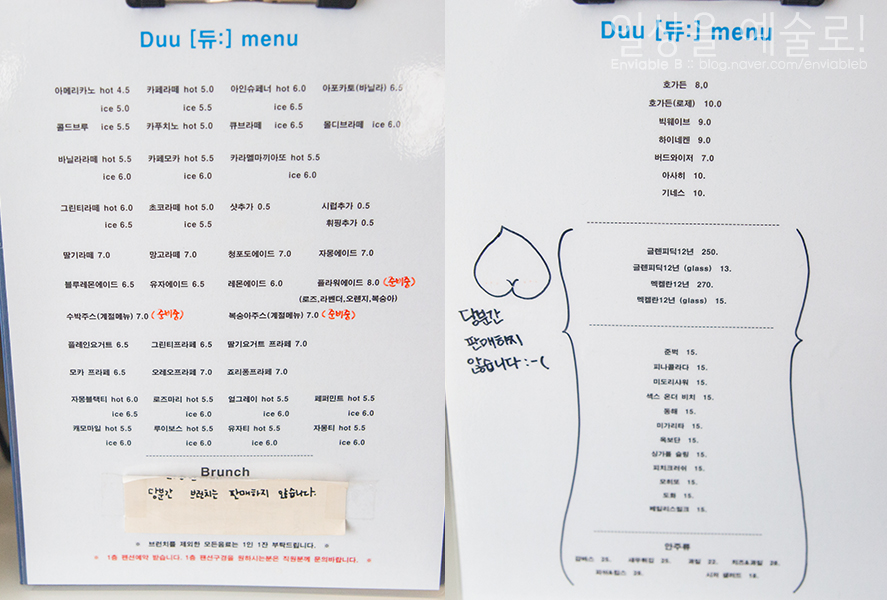 Duu [듀:] menu
아메리카노 hot 4.5 카페라떼 hot 5.0 아인슈페너 hot 6.0 아포카토(바닐라) 6.5
ice 5.0 ice 5.5 ice 6.5
콜드브루 ice 5.5 카푸치노 hot 5.0 큐브라떼 ice 6.5 몰디브라떼 ice 6.0
바닐라라떼 hot 5.5 카페모카 hot 5.5 카라멜마끼아또 hot 5.5
ice 6.0 ice 6.0 ice 6.0
그린티라떼 hot 6.0 초코라떼 hot 5.0 샷추가 0.5 시럽추가 0.5
ice 6.5 ice 5.5 휘핑추가 0.5
딸기라떼 7.0 망고라떼 7.0 청포도에이드 7.0 자몽에이드 7.0
블루레몬에이드 6.5 유자에이드 6.5 레몬에이드 6.0 플라워에이드 8.0 (준비중)
(로즈,라벤더,오렌지,복숭아)
수박주스(계절메뉴) 7.0 (준비중) 복숭아주스(계절메뉴) 7.0 (준비중)
플레인요거트 6.5 그린티프라페 6.5 딸기요거트 프라페 7.0
모카 프라페 6.5 오레오프라페 7.0 죠리퐁프라페 7.0
자몽블랙티 hot 6.0 로즈마리 hot 5.5 얼그레이 hot 5.5 페퍼민트 hot 5.5
ice 6.5 ice 6.0 ice 6.0 ice 6.0
캐모마일 hot 5.5 루이보스 hot 5.5 유자티 hot 5.5 자몽티 hot 5.5
ice 6.0 ice 6.0 ice 6.0 ice 6.0
Brunch
당분간 브런치는 판매하지 않습니다.
※ 브런치를 제외한 모든음료는 1인 1잔 부탁드립니다. ※
※ 1층 팬션예약 받습니다. 1층 팬션구경을 원하시는분은 직원분께 문의바랍니다. ※
일상을 예술로!
Duu [듀:] menu
Enviable B :: blog.naver.com/enviableb
호가든 8,0
호가든(로제) 10.0
빅웨이브 9.0
하이네켄 9.0
버드와이저 7.0
아사히 10.
기네스 10.
글렌피딕12년 250.
글렌피딕12년 (glass) 13.
맥켈란12년 270.
맥켈란12년 (glass) 15.
당분간
판매하지
않습니다 :-(
준벅 15.
피나콜라다 15.
미도리샤워 15.
섹스 온더 비치 15.
동해 15.
마가리타 15.
옥보단 15.
싱가폴 슬링 15.
피치크러쉬 15.
모히또 15.
도화 15.
베일리스밀크 15.
안주류
감바스 25. 새우튀김 25. 과일 22. 치즈&과일 28.
피쉬&칩스 28. 시저 샐러드 18.